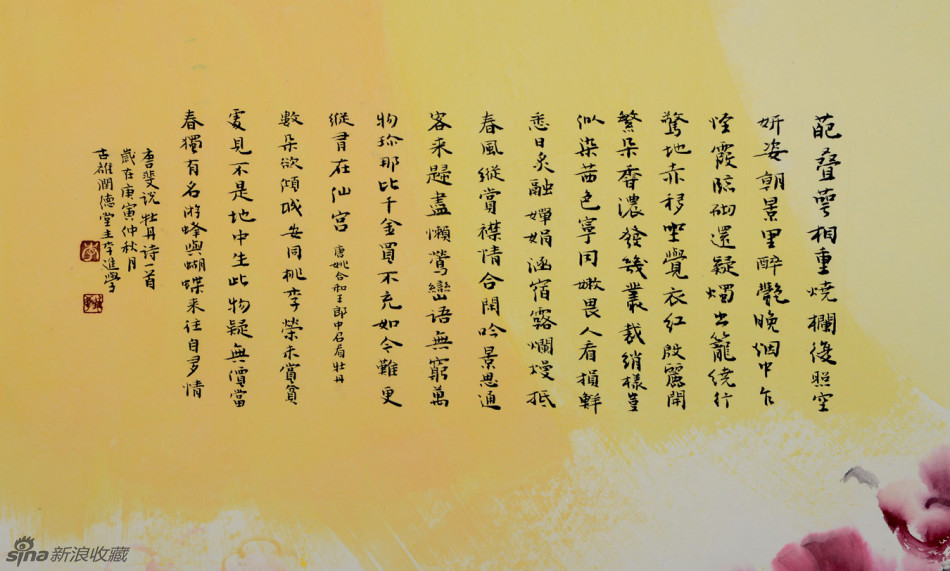 葩叠萼相重燒欄復照空
妍姿朝景里醉艷晚烟中乍
怪霞臨砌還疑燭出籠繞行
驚地赤移坐覺衣紅殷麗開
繁朵香濃發幾叢裁綃樣豈
似染茜色寧同嫩畏人看損鮮
愁日炙融嬋娟涵宿露爛熳抵
春風縱賞襟情合閑吟景思通
客来歸盡懶鶯戀語無窮萬
物珍那比千金買不充如今難更
縱有在仙宮 唐姚合和王郎中召看牡丹
數朵欲傾城安同桃李榮未嘗貧
處見不是地中生此物疑無價當
春獨有名游蜂與蝴蝶来往自多情
唐裴说牡丹诗一首
歲在庚寅仲秋月
古雄潤德堂主李進學
sina新浪收藏